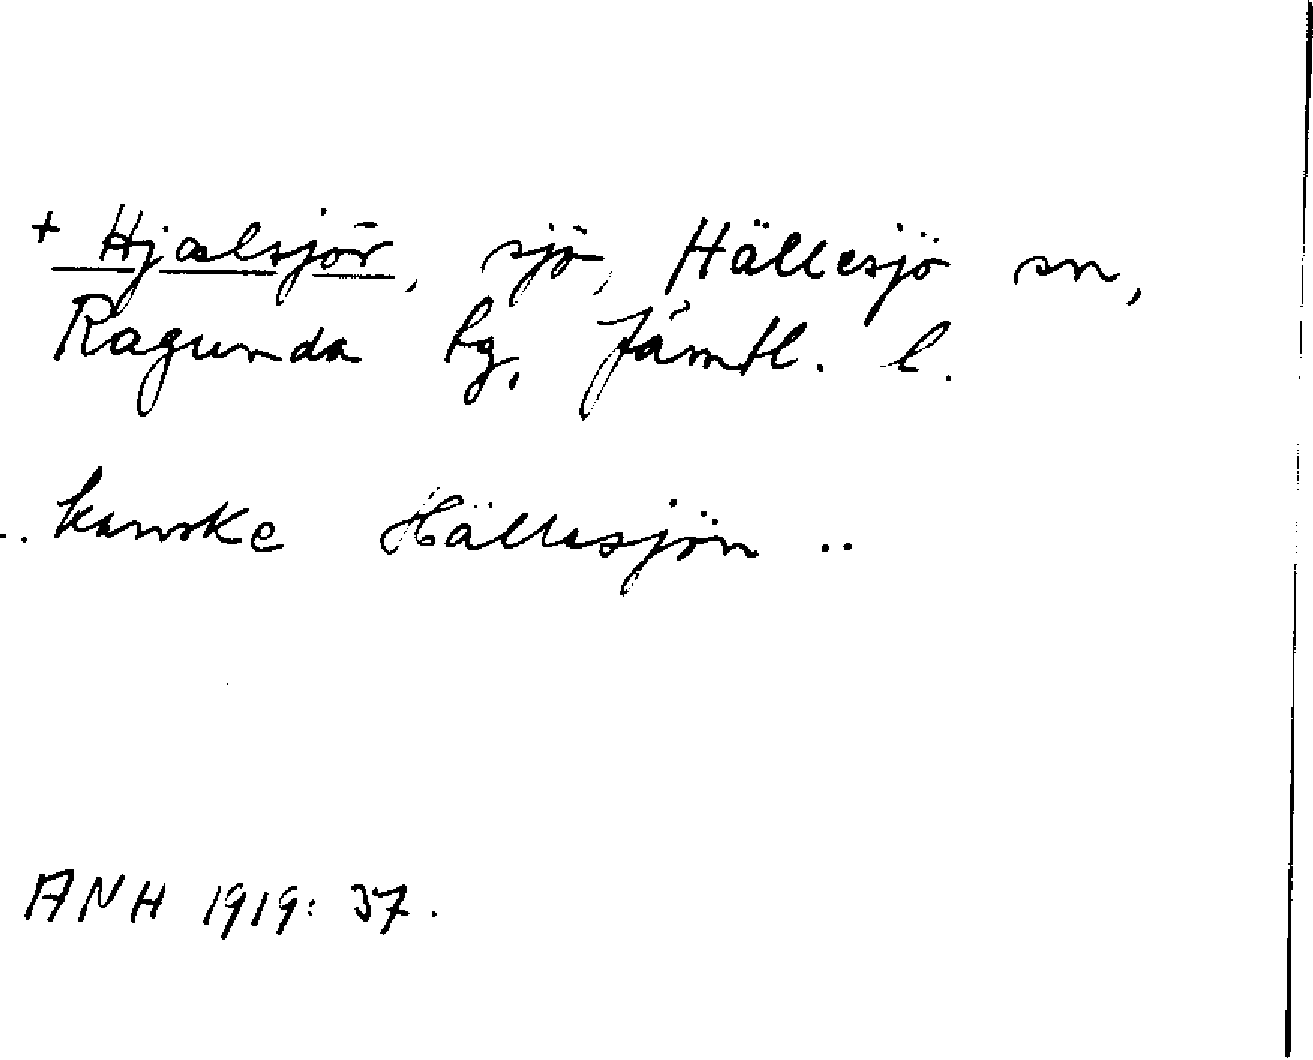 + Hjælsjór, sjö, Hällesjö sn,
Ragunda tg, Jämtl. l.
.. kanske Hällesjön ..
ANH 1919: 37.